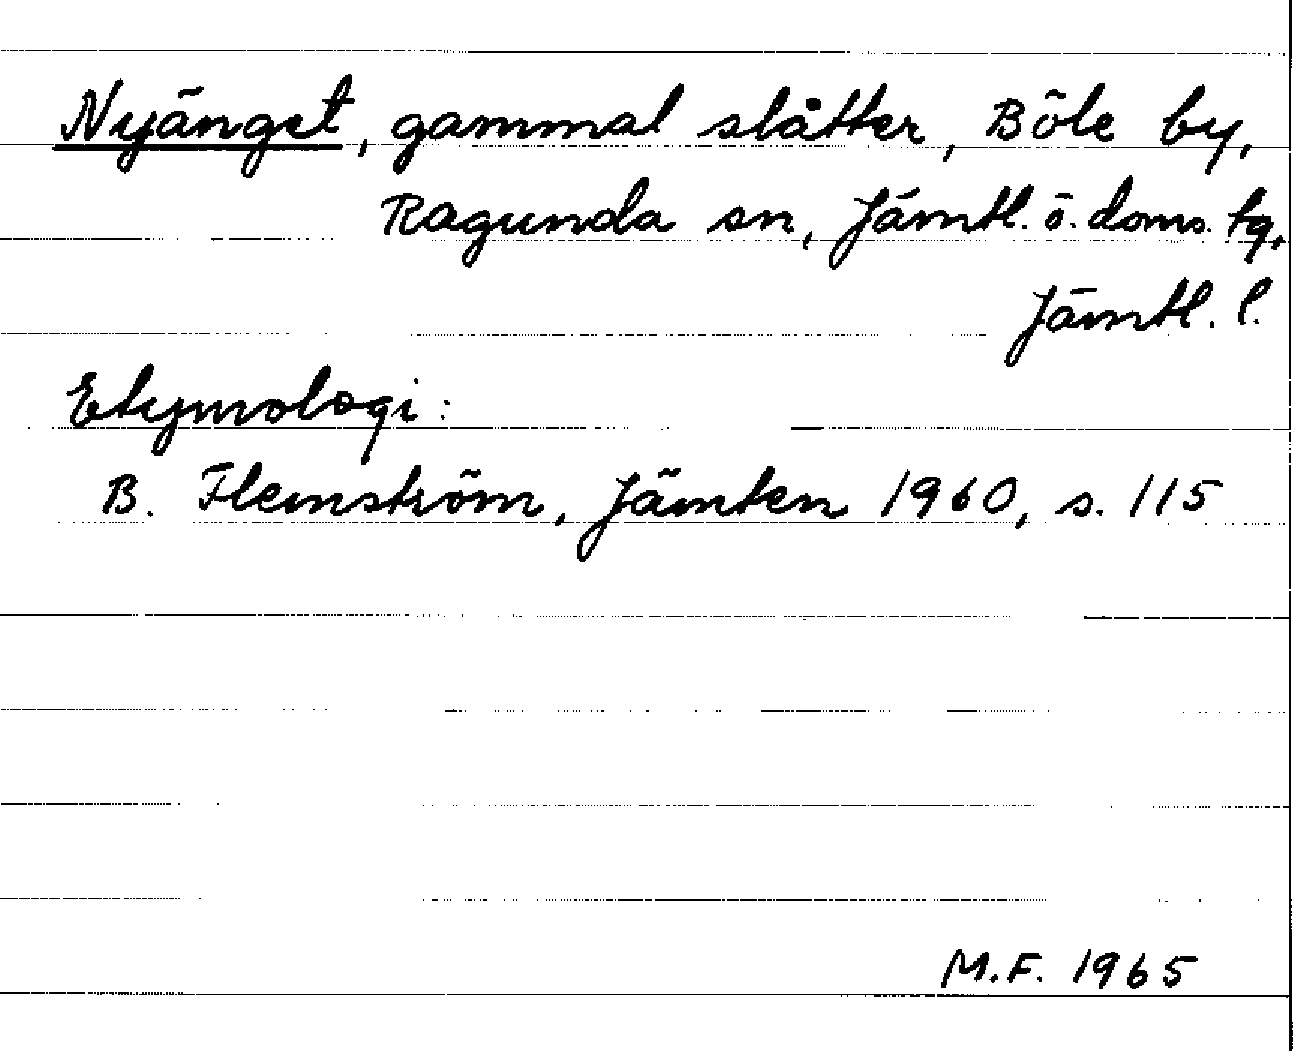 Nyänget, gammal slåtter, Böle by,
Ragunda sn, Jämtl. ö. doms. tg,
Jämtl. l.
Etymologi:
B. Flemström, Jämten 1960, s. 115
M.F. 1965